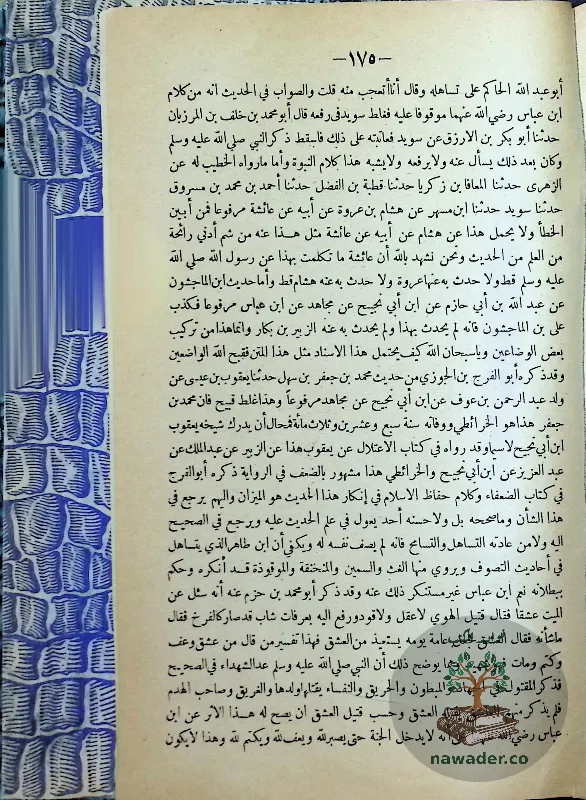 —١٧٥—
أبوعبد الله الحاكم على تساهله وقال أنا أتعجب منه قلت والصواب في الحديث انه من كلام
ابن عباس رضي الله عنهما موقوفا عليه فغلط سويد فى رفعه قال أبو محمد بن خلف بن المرزبان
حدثنا أبو بكر بن الازرق عن سويد فعاتبته على ذلك فاسقط ذكر النبي صلى الله عليه وسلم
وكان بعد ذلك يسأل عنه ولا يرفعه ولا يشبه هذا كلام النبوة وأما مارواه الخطيب له عن
الزهرى حدثنا المعافا بن زكريا حدثنا قطبة بن الفضل حدثنا أحمد بن محمد بن مسروق
حدثنا سويد حدثنا ابن مسهر عن هشام بن عروة عن أبيه عن عائشة مرفوعا فمن أبين
الخطأ ولا يحمل هذا عن هشام عن أبيه عن عائشة مثل هذا عنه من شم أدني رائحة
من العلم من الحديث ونحن نشهد بالله أن عائشة ما تكلمت بهذا عن رسول الله صلى الله
عليه وسلم قط ولا حدث به عنها عروة ولا حدث به عنه هشام قط وأما حديث ابن الماجشون
عن عبد الله بن أبي حازم عن ابن أبي نجيح عن مجاهد عن ابن عباس مرفوعا فكذب
على بن الماجشون فانه لم يحدث بهذا ولم يحدث به عنه الزبير بن بكار وانما هذا من تركيب
بعض الوضاعين وياسبحان الله كيف يحتمل هذا الاسناد مثل هذا المتن فقبح الله الواضعين
وقد ذكره أبو الفرج بن الجوزي من حديث محمد بن جعفر بن سهل حدثنا يعقوب بن عيسى عن
ولد عبد الرحمن بن عوف عن ابن أبي نجيح عن مجاهد مرفوعاً وهذا غلط قبيح فان محمد بن
جعفر هذا هو الخرائطي ووفاته سنة سبع وعشرين وثلاث مائة فمحال أن يدرك شيخه يعقوب
ابن أبي نجيح لاسيما وقد رواه في كتاب الاعتلال عن يعقوب هذا عن الزبير عن عبد الملك عن
عبد العزيز عن ابن أبي نجيح والخرائطي هذا مشهور بالضعف في الرواية ذكره أبو الفرج
في كتاب الضعفاء وكلام حفاظ الاسلام في إنكار هذا الحديث هو الميزان واليهم يرجع في
هذا الشأن وماصححه بل ولا حسنه أحد يعول في علم الحديث عليه ويرجع في الصحيح
اليه ولا من عادته التساهل والتسامح فانه لم يصف نفسه له ويكفي أن ابن طاهر الذي يتساهل
في أحاديث التصوف ويروي منها الغث والسمين والمنخنقة والموقوذة قد أنكره وحكم
ببطلانه نعم ابن عباس غير مستنكر ذلك عنه وقد ذكر أبو محمد بن حزم عنه أنه سئل عن
الميت عشقا فقال قتيل الهوي لا عقل ولا قود ورفع اليه بعرفات شاب قد صار كالفرخ فقال
ماشأنه فقال العشق عامة يومه يستعيذ من العشق فهذا تفسير من قال من عشق وعف
وكتم ومات يوضح ذلك أن النبي صلى الله عليه وسلم عد الشهداء في الصحيح
فذكر المقتول في والمبطون والحريق والنفساء يقتلها ولدها والغريق وصاحب الهدم
فلم يذكر العشق وحسب قتيل العشق ان يصح له هذا الأثر عن ابن
عباس رضي الله لا يدخل الجنة حتى يصبر لله ويعف لله ويكتم لله وهذا لا يكون
nawader.co